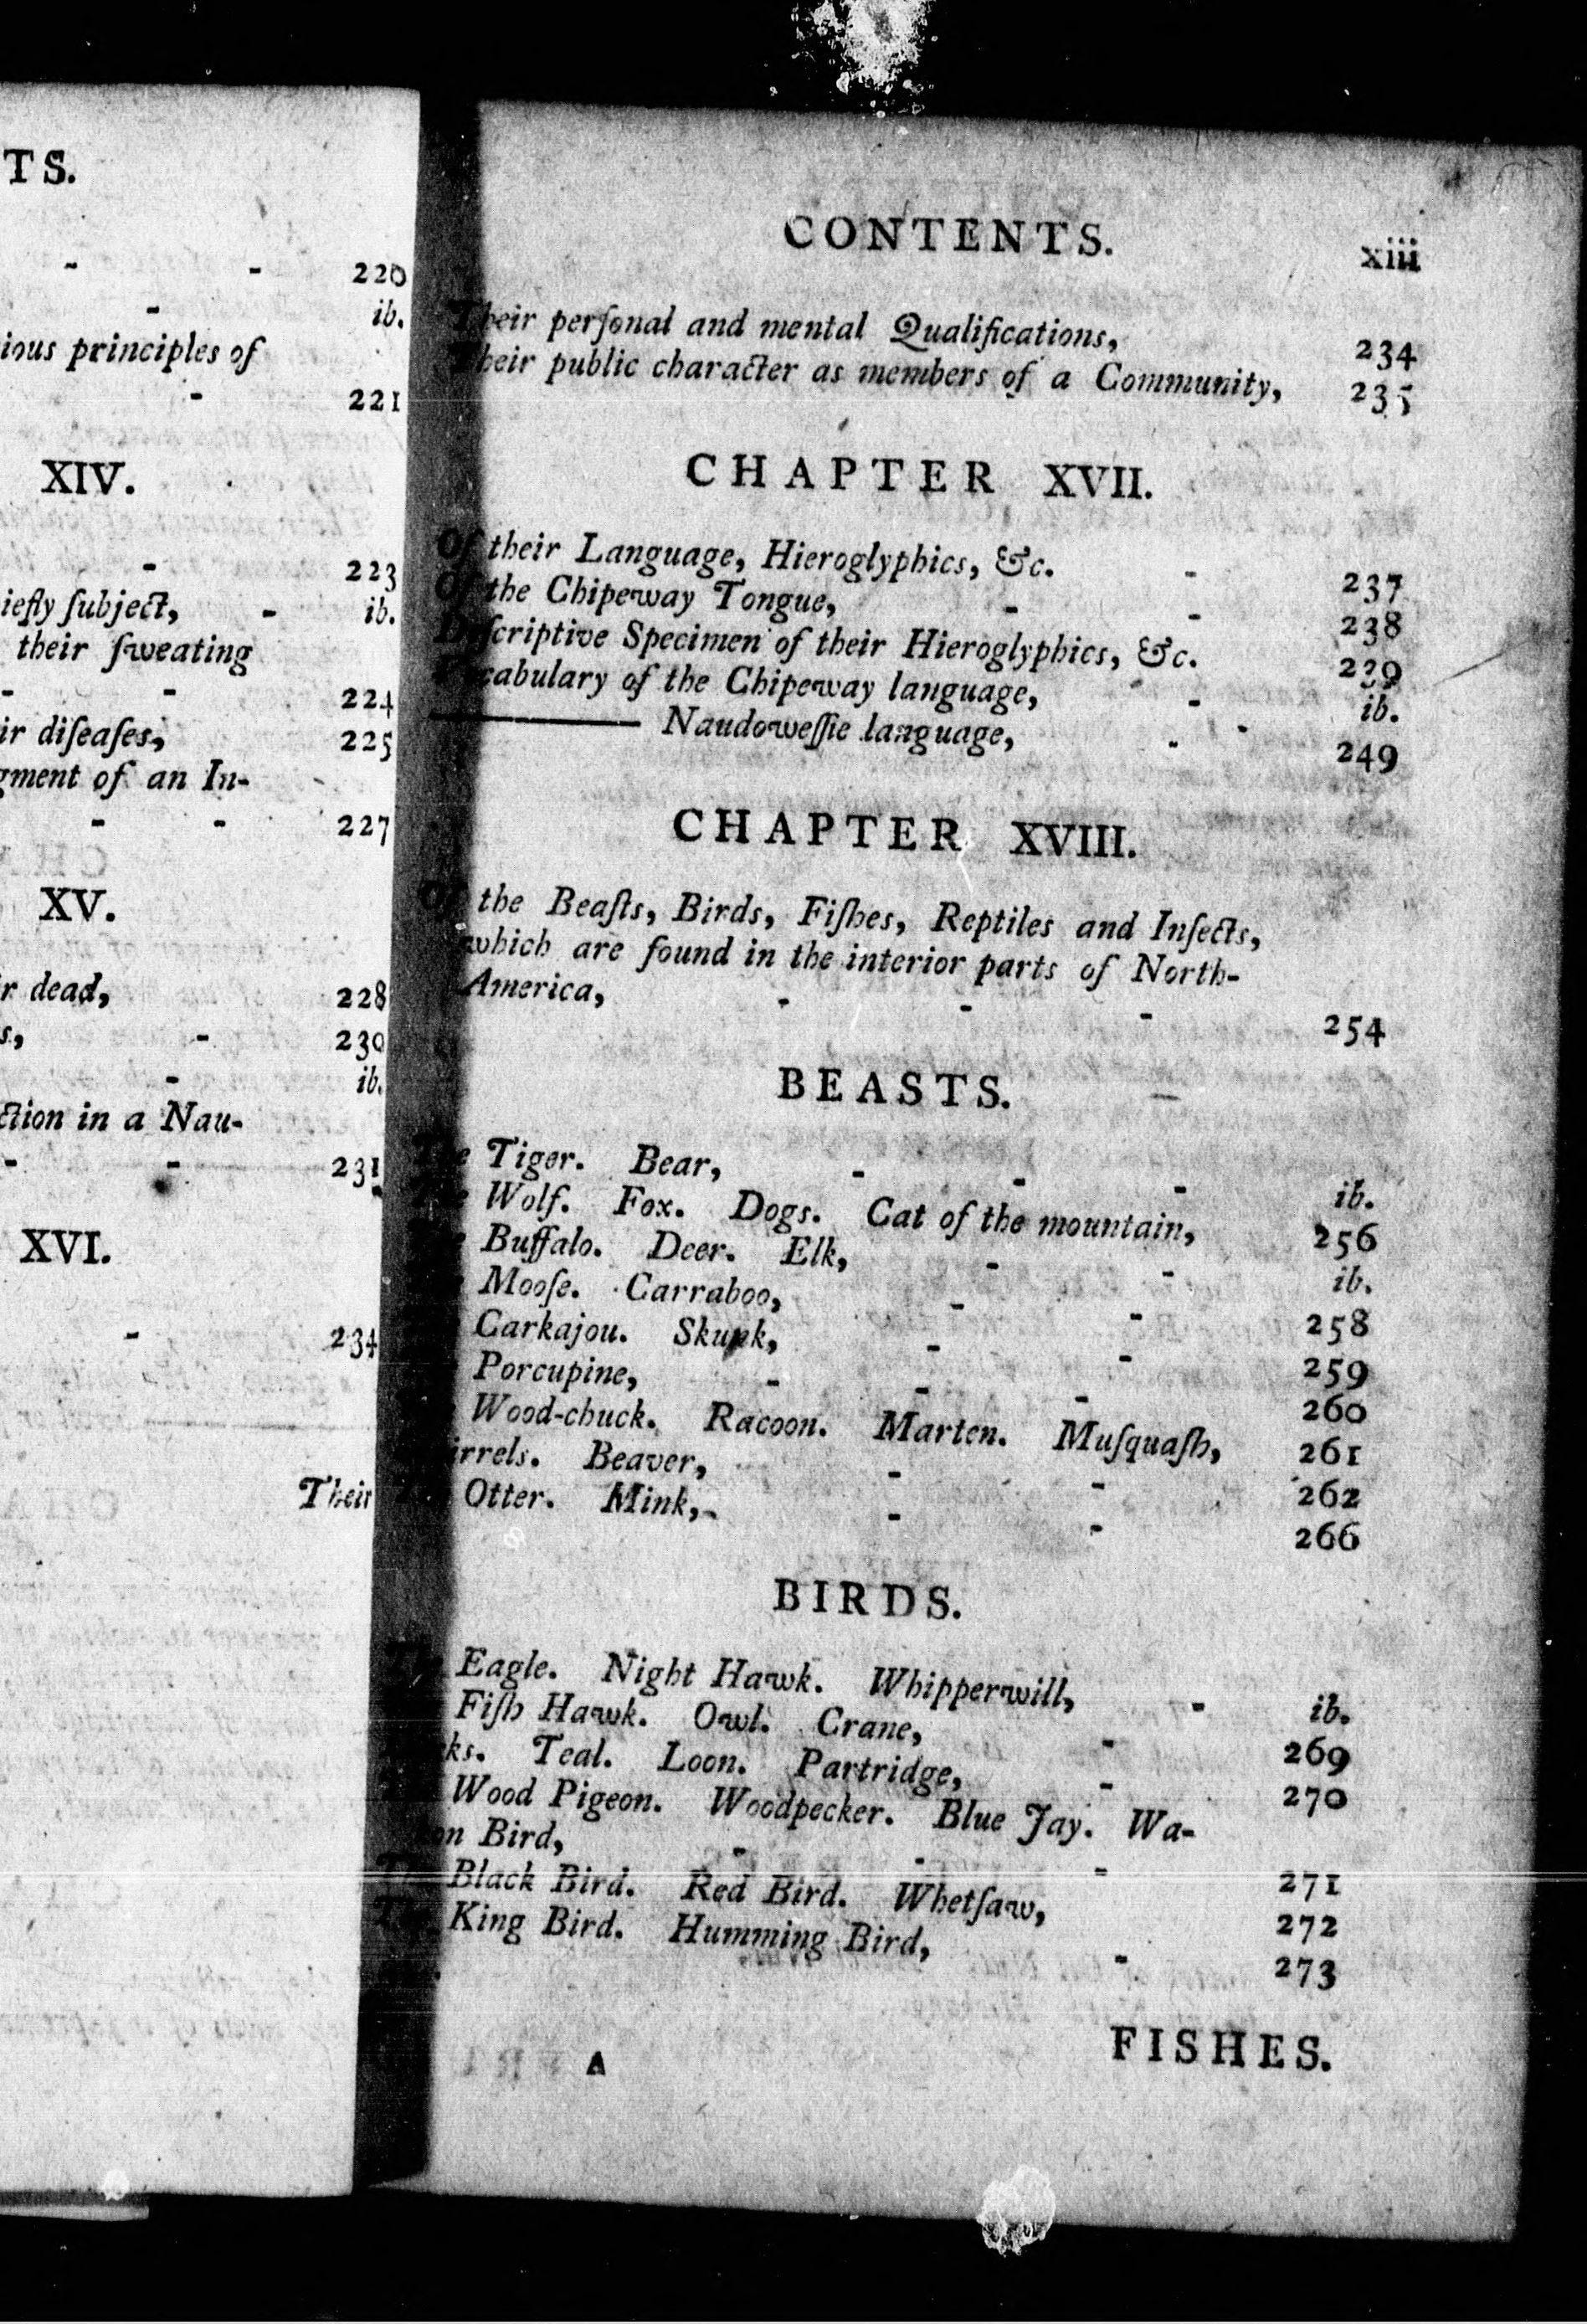 TS.
- - 220
- ib.
ious principles of
- 221
XIV.
- 223
iefly ſubject, - ib.
their ſweating
- - 224
ir diſeaſes, 225
gment of an In-
- - 227
XV.
r dead, 228
s, - 230
- ib.
ction in a Nau-
- - 231
XVI.
- 234
Their
CONTENTS. xiii
Their perſonal and mental Qualifications, 234
Their public character as members of a Community, 235
CHAPTER XVII.
Of their Language, Hieroglyphics, &c. - 237
Of the Chipeway Tongue, - - 238
Deſcriptive Specimen of their Hieroglyphics, &c. 239
Vocabulary of the Chipeway language, - ib.
——— Naudoweſſie language, - - 249
CHAPTER XVIII.
Of the Beaſts, Birds, Fiſhes, Reptiles and Inſects,
which are found in the interior parts of North-
America, - - - 254
BEASTS.
The Tiger. Bear, - - - ib.
Wolf. Fox. Dogs. Cat of the mountain, 256
Buffalo. Deer. Elk, - - ib.
Mooſe. Carraboo, - - 258
Carkajou. Skunk, - - 259
Porcupine, - - - 260
Wood-chuck. Racoon. Marten. Muſquaſh, 261
irrels. Beaver, - - 262
Otter. Mink, - - 266
BIRDS.
The Eagle. Night Hawk. Whipperwill, - ib.
Fiſh Hawk. Owl. Crane, - 269
ks. Teal. Loon. Partridge, - 270
Wood Pigeon. Woodpecker. Blue Jay. Wa-
on Bird, - - - 271
The Black Bird. Red Bird. Whetſaw, 272
The King Bird. Humming Bird, - 273
A FISHES.